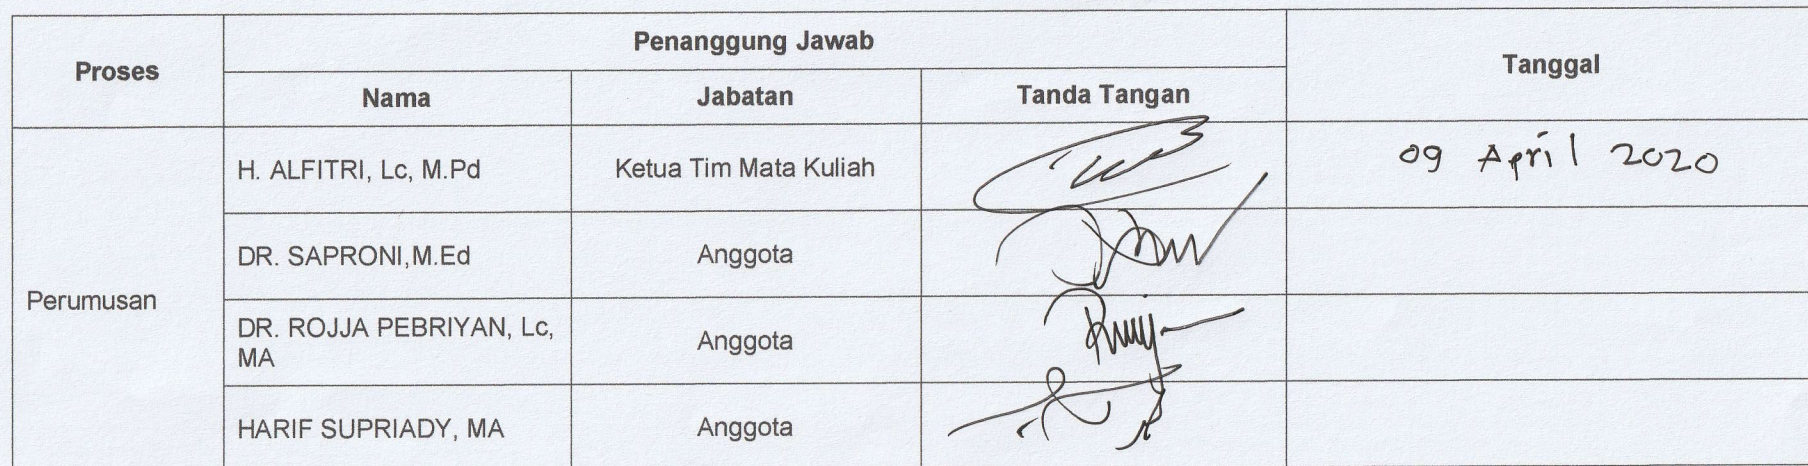 Proses
Penanggung Jawab
Tanggal
Nama
Jabatan
Tanda Tangan
Perumusan
H. ALFITRI, Lc, M.Pd
Ketua Tim Mata Kuliah
09 April 2020
DR. SAPRONI,M.Ed
Anggota
DR. ROJJA PEBRIYAN, Lc,
MA
Anggota
HARIF SUPRIADY, MA
Anggota